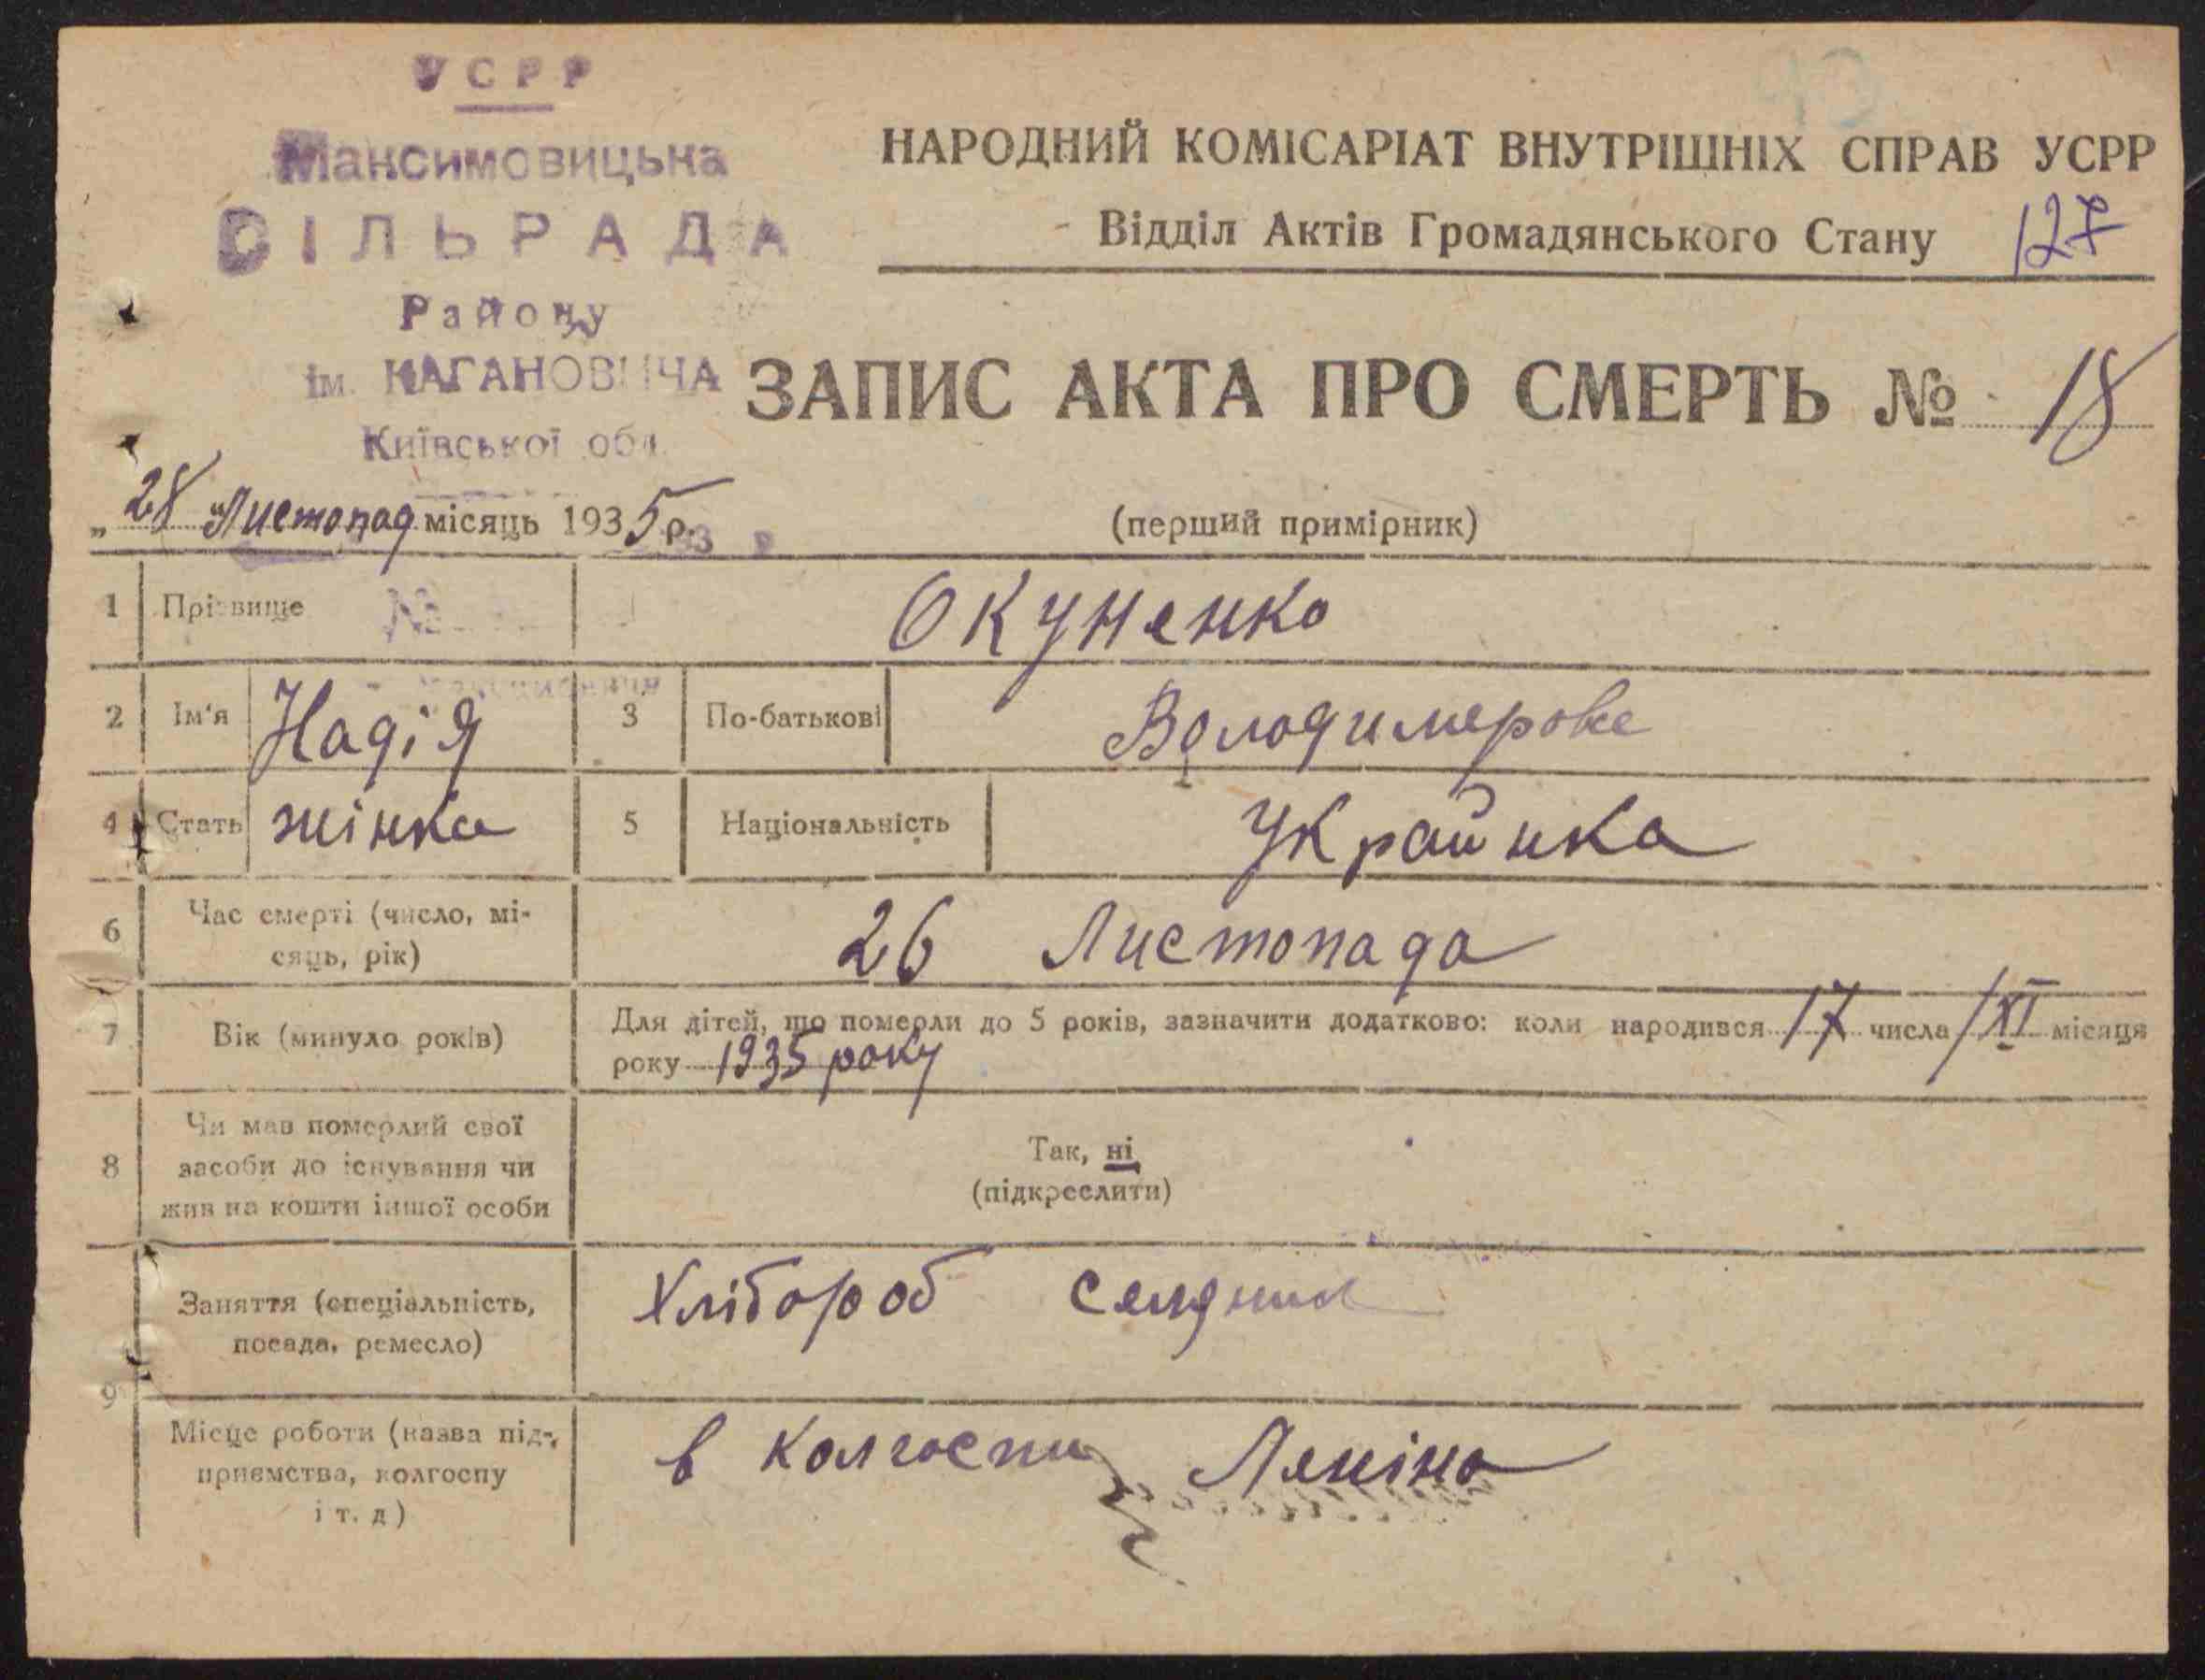 УСРР
Максимовицька
СІЛЬРАДА
Району
ім. КАГАНОВИЧА
Київської обл.
НАРОДНИЙ КОМІСАРІАТ ВНУТРІШНІХ СПРАВ УСРР
Відділ Актів Громадянського Стану 127
ЗАПИС АКТА ПРО СМЕРТЬ № 18
„28" Листопад місяць 1935 р.
(перший примірник)
1 Прізвище Окуненко
2 Ім'я Надія 3 По-батькові Володимеровне
4 Стать жінка 5 Національність Украйинка
6 Час смерті (число, мі-
сяць, рік) 26 Листопада
7 Вік (минуло років) Для дітей, що померли до 5 років, зазначити додатково: коли народився 17 числа XI місяця
року 1935 року
8 Чи мав померлий свої
засоби до існування чи
жив на кошти іншої особи
Так, ні
(підкреслити)
9 Заняття (спеціальність,
посада, ремесло) Хлібороб
Місце роботи (назва під-
приємства, колгоспу
і т. д) в колгоспи Леніна